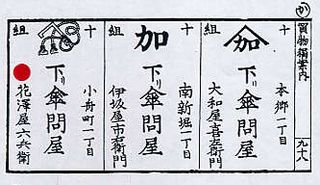 買物獨案内
九十八
十組
本郷一丁目
下リ傘問屋
大和屋
十組
南新堀一丁目
加
下リ傘問屋
伊坂屋
十組
小舟町一丁目
下リ傘問屋
花澤屋六兵衛